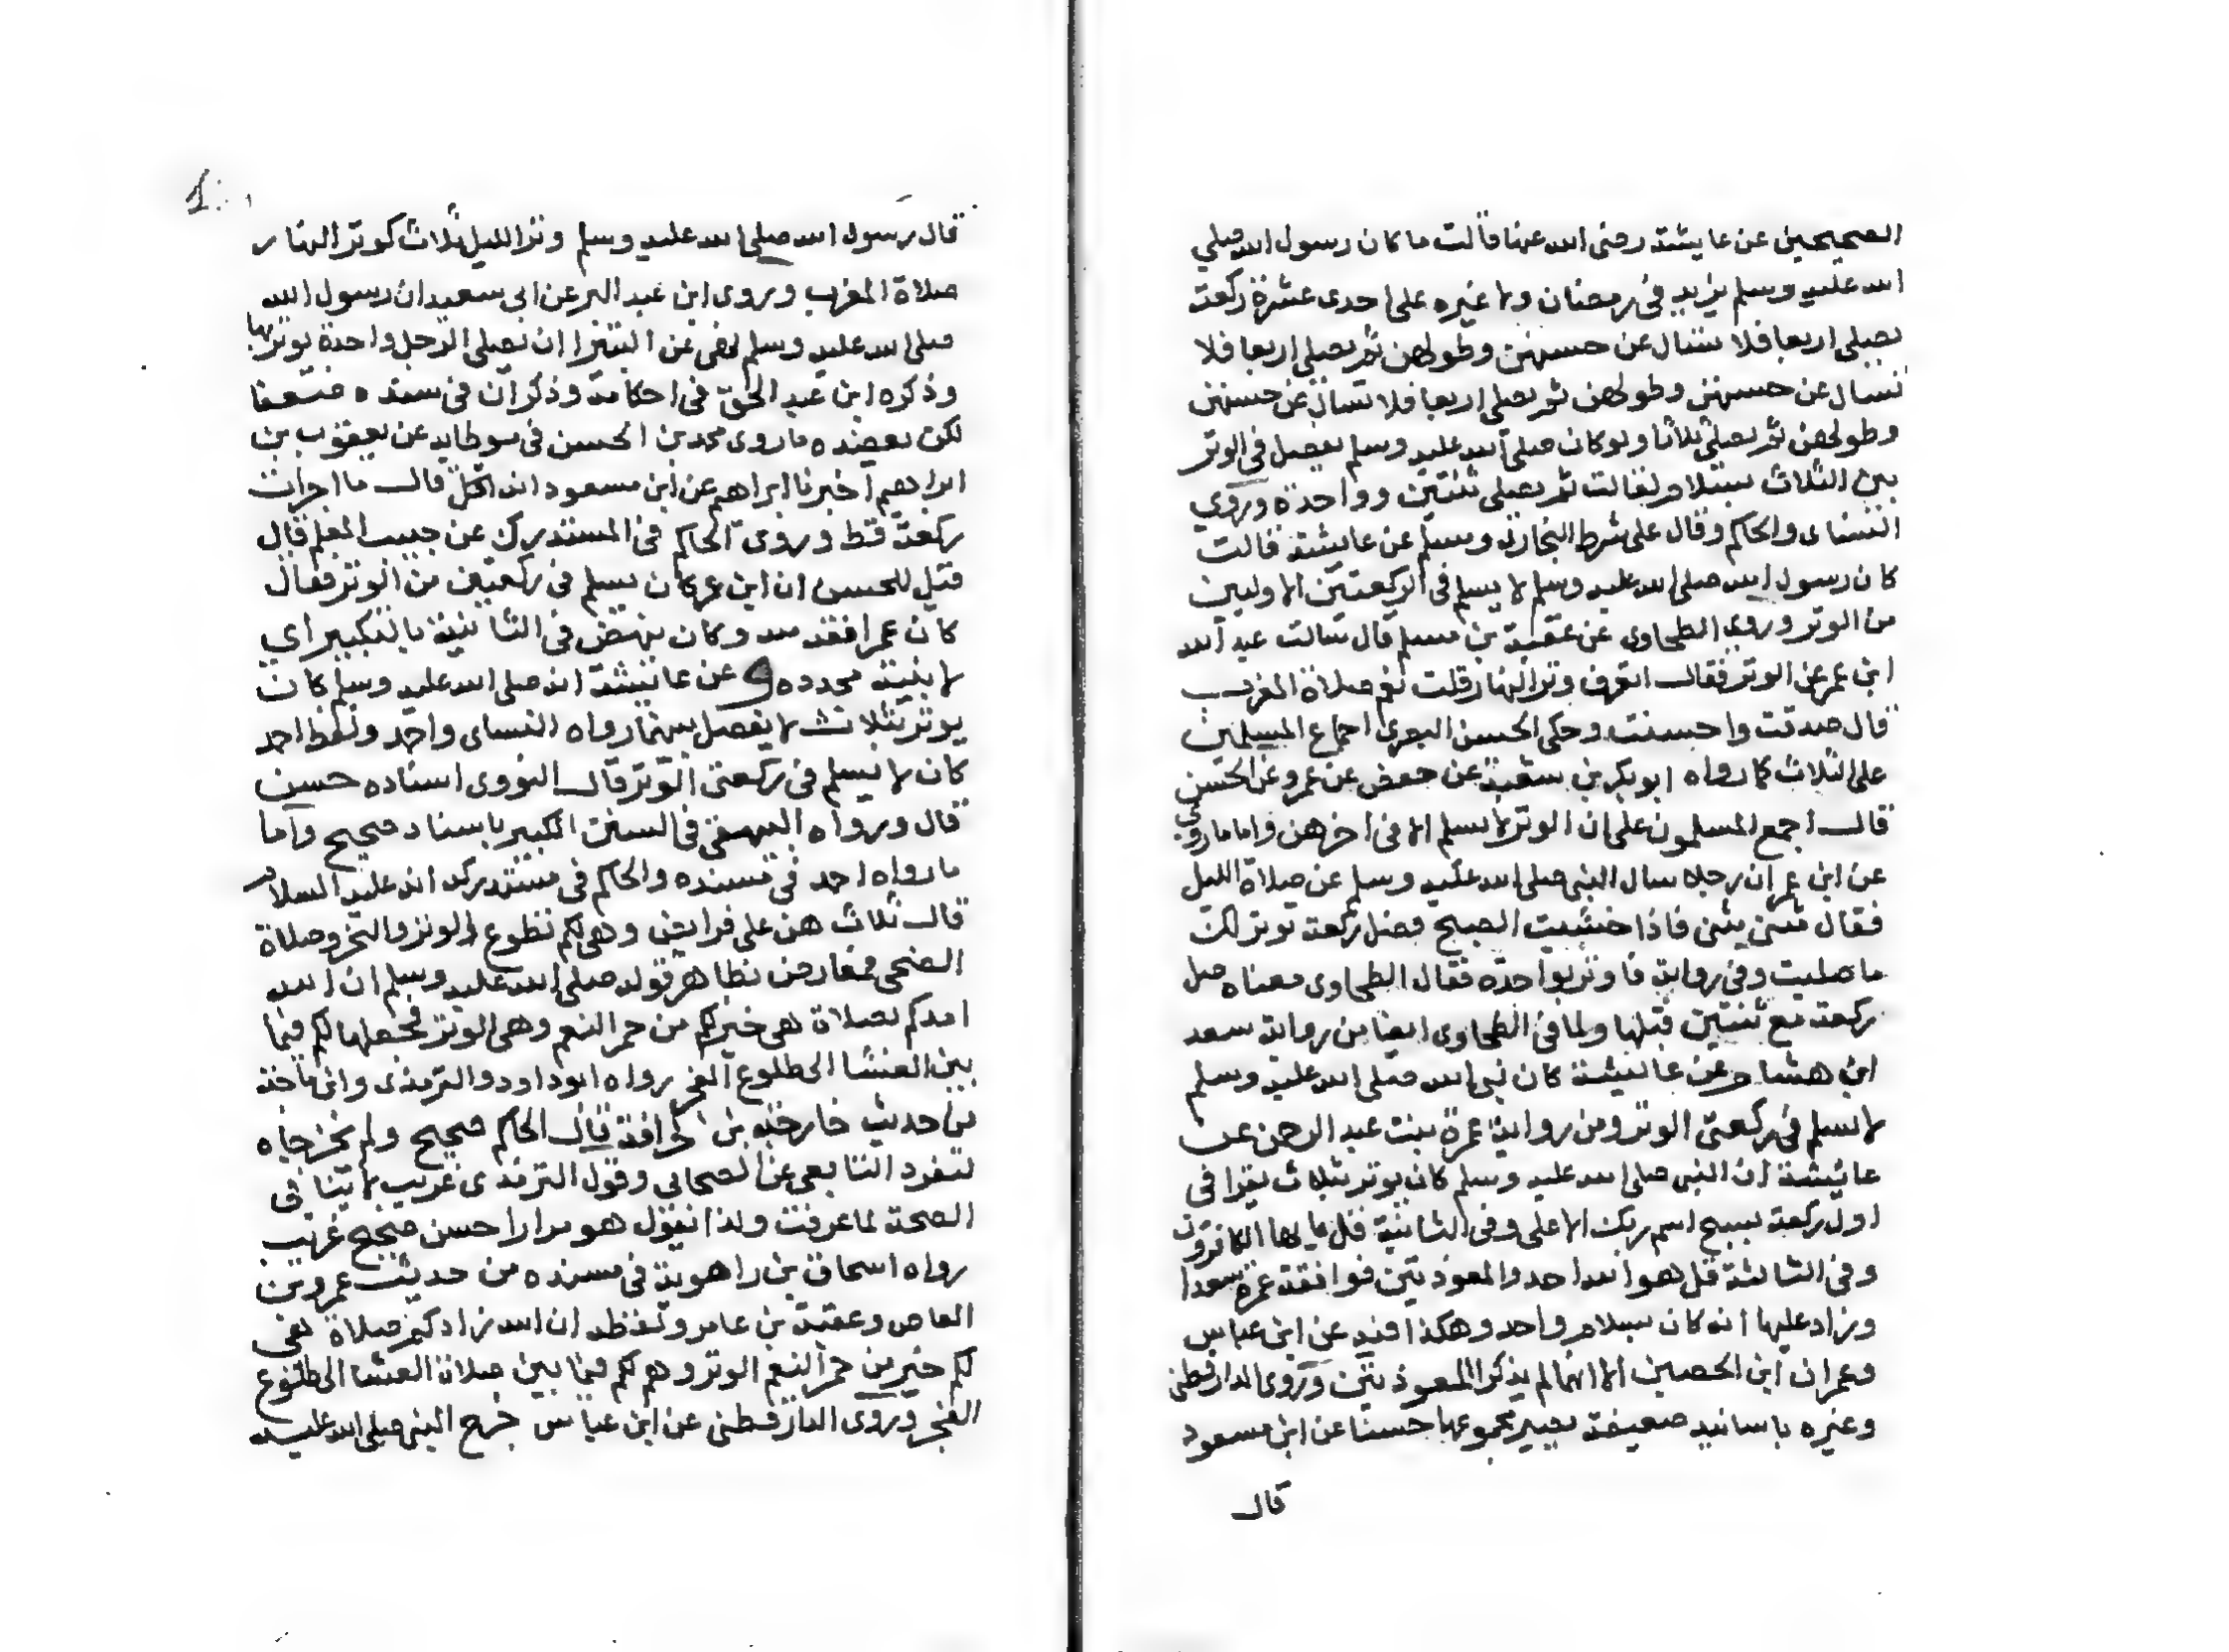 الصحيحين عن عايشة رضى الله عنها قالت ما كان رسول الله صلي
الله عليه وسلم يزيد فى رمضان ولا غيره على احدى عشرة ركعة
يصلى اربعا فلا تسال عن حسنهن وطولهن ثم يصلى اربعا فلا
تسال عن حسنهن وطولهن ثم يصلى اربعا فلا تسال عن حسنهن
وطولهن ثم يصلى ثلاثا ولو كان صلى الله عليه وسلم يفصل فى الوتر
بين الثلاث بسلام لقالت ثم يصلى ثنتين وواحدة وروي
النساى والحاكم وقال على شرط البخارى ومسلم عن عايشة قالت
كان رسول الله صلى الله عليه وسلم لا يسلم فى الركعتين الاوليين
من الوتر وروى الطحاوى عن عقبة بن مسلم قال سالت عبد الله
ابن عمر عن الوتر فقال اتعرف وتر النهار قلت نعم صلاة المغرب
قال صدقت واحسنت وحكى الحسن البصرى اجماع المسلمين
على الثلاث كما رواه ابو بكر بن شيبة عن حفص عن عمرو عن الحسن
قال اجمع المسلمون على ان الوتر لا يسلم الا فى اخرهن واما ما روي
عن ابن عمر ان رجلا سال النبى صلى الله عليه وسلم عن صلاة الليل
فقال مثنى مثنى فاذا خشيت الصبح فصل ركعة توتر لك
ما صليت وفى رواية فاوتر بواحدة فقال الطحاوى معناه صل
ركعة مع ثنتين قبلها ولما فى الطحاوى ايضا من رواية سعد
ابن هشام عن عائيشة كان نبى الله صلى الله عليه وسلم
لا يسلم فى ركعتى الوتر ومن رواية عمرة بنت عبد الرحمن عن
عائيشة ان النبى صلى الله عليه وسلم كان يوتر بثلاث يقرا فى
اول ركعة بسبح اسم ربك الاعلى وفى الثانية قل يا يها الكافرون
وفى الثالثة قل هو الله احد والمعوذتين فوافقة عمرة سعدا
وزاد عليها انه كان بسلام واحد وهكذا فيه عن ابن عباس
وعمران ابن الحصين الا انهما لم يذكرا المعوذتين وروى الدارقطنى
وغيره باسانيد ضعيفة يصير مجموعها حسنا عن ابن مسعود
قال
قال رسول الله صلى الله عليه وسلم وتر الليل ثلاث كوتر النهار
صلاة المغرب وروى ابن عبد البر عن ابى سعيد ان رسول الله
صلى الله عليه وسلم نهى عن البتيرا ان يصلى الرجل واحدة يوتر بها
وذكره ابن عبد الحق فى احكامه وذكر ان فى سنده ضعفا
لكن يعضده ما روى محمد بن الحسن فى موطايه عن يعقوب بن
ابراهيم اخبرنا ابراهم عن ابن مسعود انه قال ما اجزات
ركعة قط وروى الحاكم فى المستدرك عن حبيب المعلم قال
قيل للحسن ان ابن عمر كان يسلم فى ركعتين من الوتر فقال
كان عمر افقه منه وكان ينهض فى الثانية بالتكبير اي
لا بنية مجدده وعن عائيشة انه صلى الله عليه وسلم كان
يوتر بثلاث لا يفصل بينهما رواه النساى واحد ولفظ احد
كان لا يسلم فى ركعتى الوتر قال النووى اسناده حسن
قال ورواه البيهقى فى السنن الكبير باسناد صحيح واما
ما رواه احد فى مسنده والحاكم فى مستدركه انه عليه السلام
قال ثلاث هن على فرايض وهى لكم تطوع الوتر والنحر وصلاة
الضحى فمعارض بظاهر قوله صلى الله عليه وسلم ان الله
امدكم بصلاة هى خير لكم من حمر النعم وهى الوتر فجعلها لكم فيما
بين العشا الى طلوع الفجر رواه ابو داود والترمذى وابن ماجة
من حديث خارجة بن حذافة قال الحاكم صحيح ولم يخرجاه
لتفرد التابعى عن الصحابى وقول الترمذى غريب لا ينافى
الصحة لما عرفت ولذا نقول هو مرارا حسن صحيح غريب
رواه اسحاق بن راهوية فى مسنده من حديث عمرو بن
العاص وعقبة بن عامر ولفظه ان الله زادكم صلاة هى
لكم خير من حمر النعم الوتر وهى لكم فيما بين صلاة العشا الى طلوع
الفجر وروى الدارقطنى عن ابن عباس خرج النبى صلى الله عليه